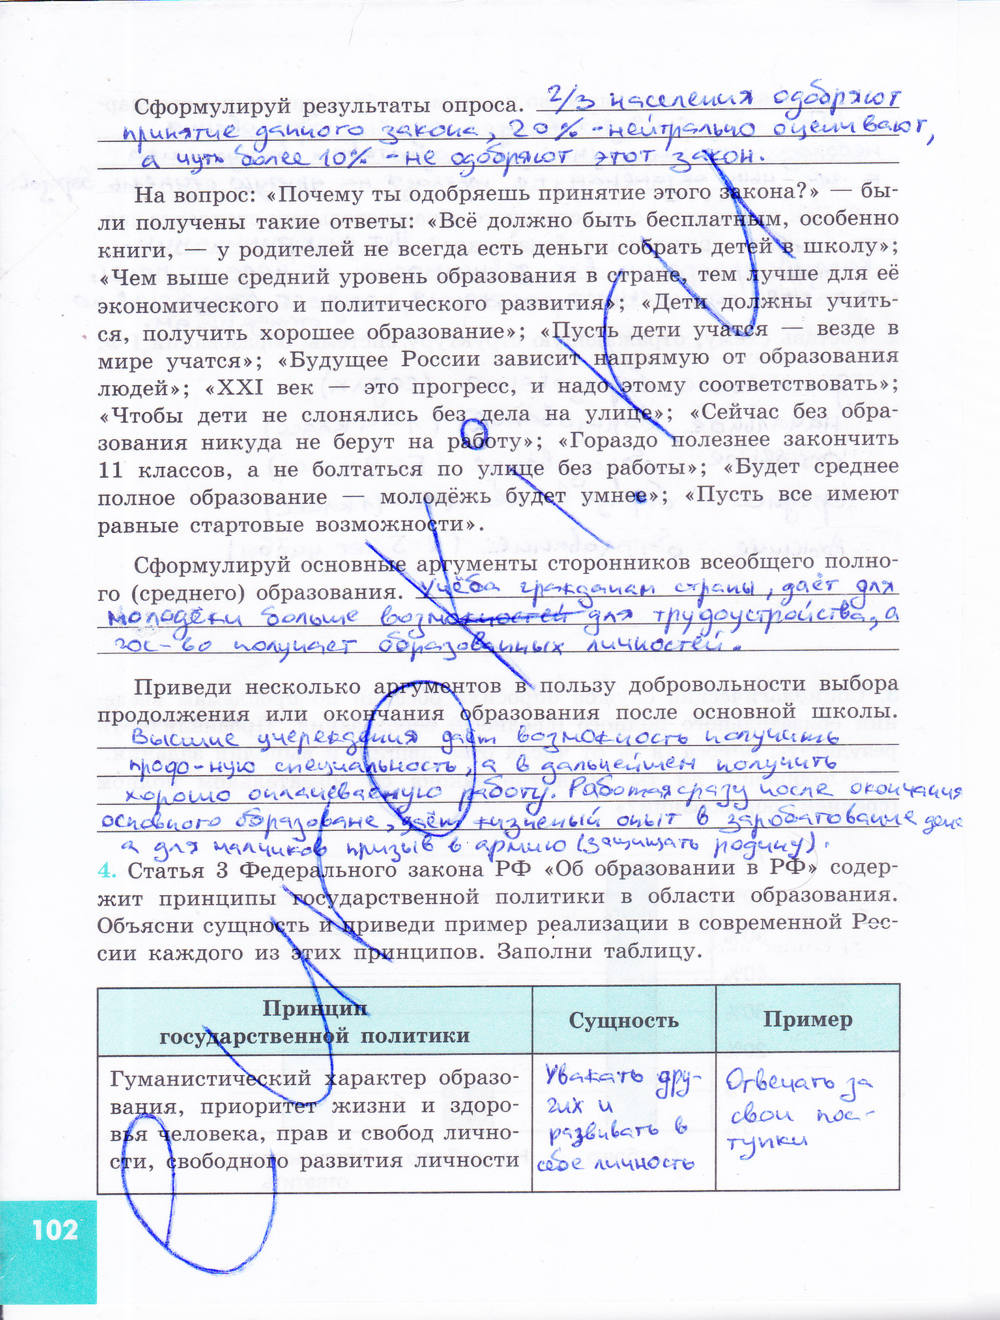 Сформулируй результаты опроса. 2/3 населения одобряют
принятие данного закона, 20% - нейтрально оценивают,
а чуть более 10% - не одобряют этот закон.
На вопрос: «Почему ты одобряешь принятие этого закона?» — бы-
ли получены такие ответы: «Всё должно быть бесплатным, особенно
книги, — у родителей не всегда есть деньги собрать детей в школу»;
«Чем выше средний уровень образования в стране, тем лучше для её
экономического и политического развития»; «Дети должны учить-
ся, получить хорошее образование»; «Пусть дети учатся — везде в
мире учатся»; «Будущее России зависит напрямую от образования
людей»; «XXI век — это прогресс, и надо этому соответствовать»;
«Чтобы дети не слонялись без дела на улице»; «Сейчас без обра-
зования никуда не берут на работу»; «Гораздо полезнее закончить
11 классов, а не болтаться по улице без работы»; «Будет среднее
полное образование — молодёжь будет умнее»; «Пусть все имеют
равные стартовые возможности».
Сформулируй основные аргументы сторонников всеобщего полно-
го (среднего) образования. Учёба гражданам страны, даёт для
молодёжи больше возможностей для трудоустройства, а
гос-во получает образованных личностей.
Приведи несколько аргументов в пользу добровольности выбора
продолжения или окончания образования после основной школы.
Высшие учереждения даёт возможность получить
продо-ную специальность, а в дальнейшем получить
хорошо оплачеваемую работу. Работая сразу после окончания
основного образоване, даёт жизненый опыт в заработование дене
а для мальчиков призыв в армию (защищать родину).
4. Статья 3 Федерального закона РФ «Об образовании в РФ» содер-
жит принципы государственной политики в области образования.
Объясни сущность и приведи пример реализации в современной Рос-
сии каждого из этих принципов. Заполни таблицу.
Принцип
государственной политики
Сущность
Пример
Гуманистический характер образо-
вания, приоритет жизни и здоро-
вья человека, прав и свобод лично-
сти, свободного развития личности
Уважать дру-
гих и
развивать в
себе личность
Отвечать за
свои пос-
тупки
102